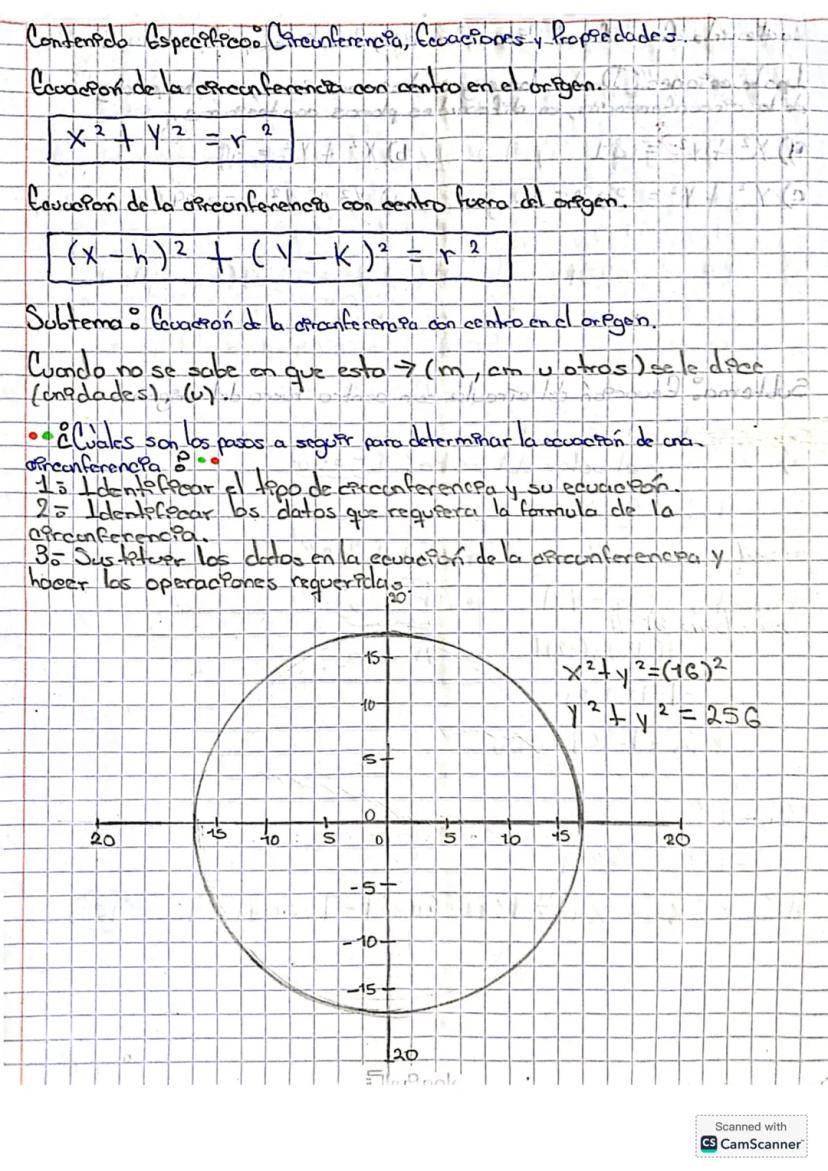 Contenido Especifico: Circunferencia, Ecuaciones y Propiedades.
Ecuación de la circunferencia con centro en el origen.
x² + y² = r²
Ecuación de la circunferencia con centro fuera del origen.
(x-h)² + (y-k)² = r²
Subtema: Ecuación de la circunferencia con centro en el origen.
Cuando no se sabe en que esta → (m, cm u otros) se le dice
(unidades), (u).
¿Cuáles son los pasos a seguir para determinar la ecuación de una
circunferencia?
1= Identificar el tipo de circunferencia y su ecuación.
2= Identificar los datos que requiera la formula de la
circunferencia.
3= Sustituer los datos en la ecuación de la circunferencia y
hacer las operaciones requeridas.
20
15
x²+y²=(16)²
10
y²+y²=256
5
0
20 -15 10 5 0 5 10 15 20
-5
-10
-15
20
Scanned with
CS CamScanner